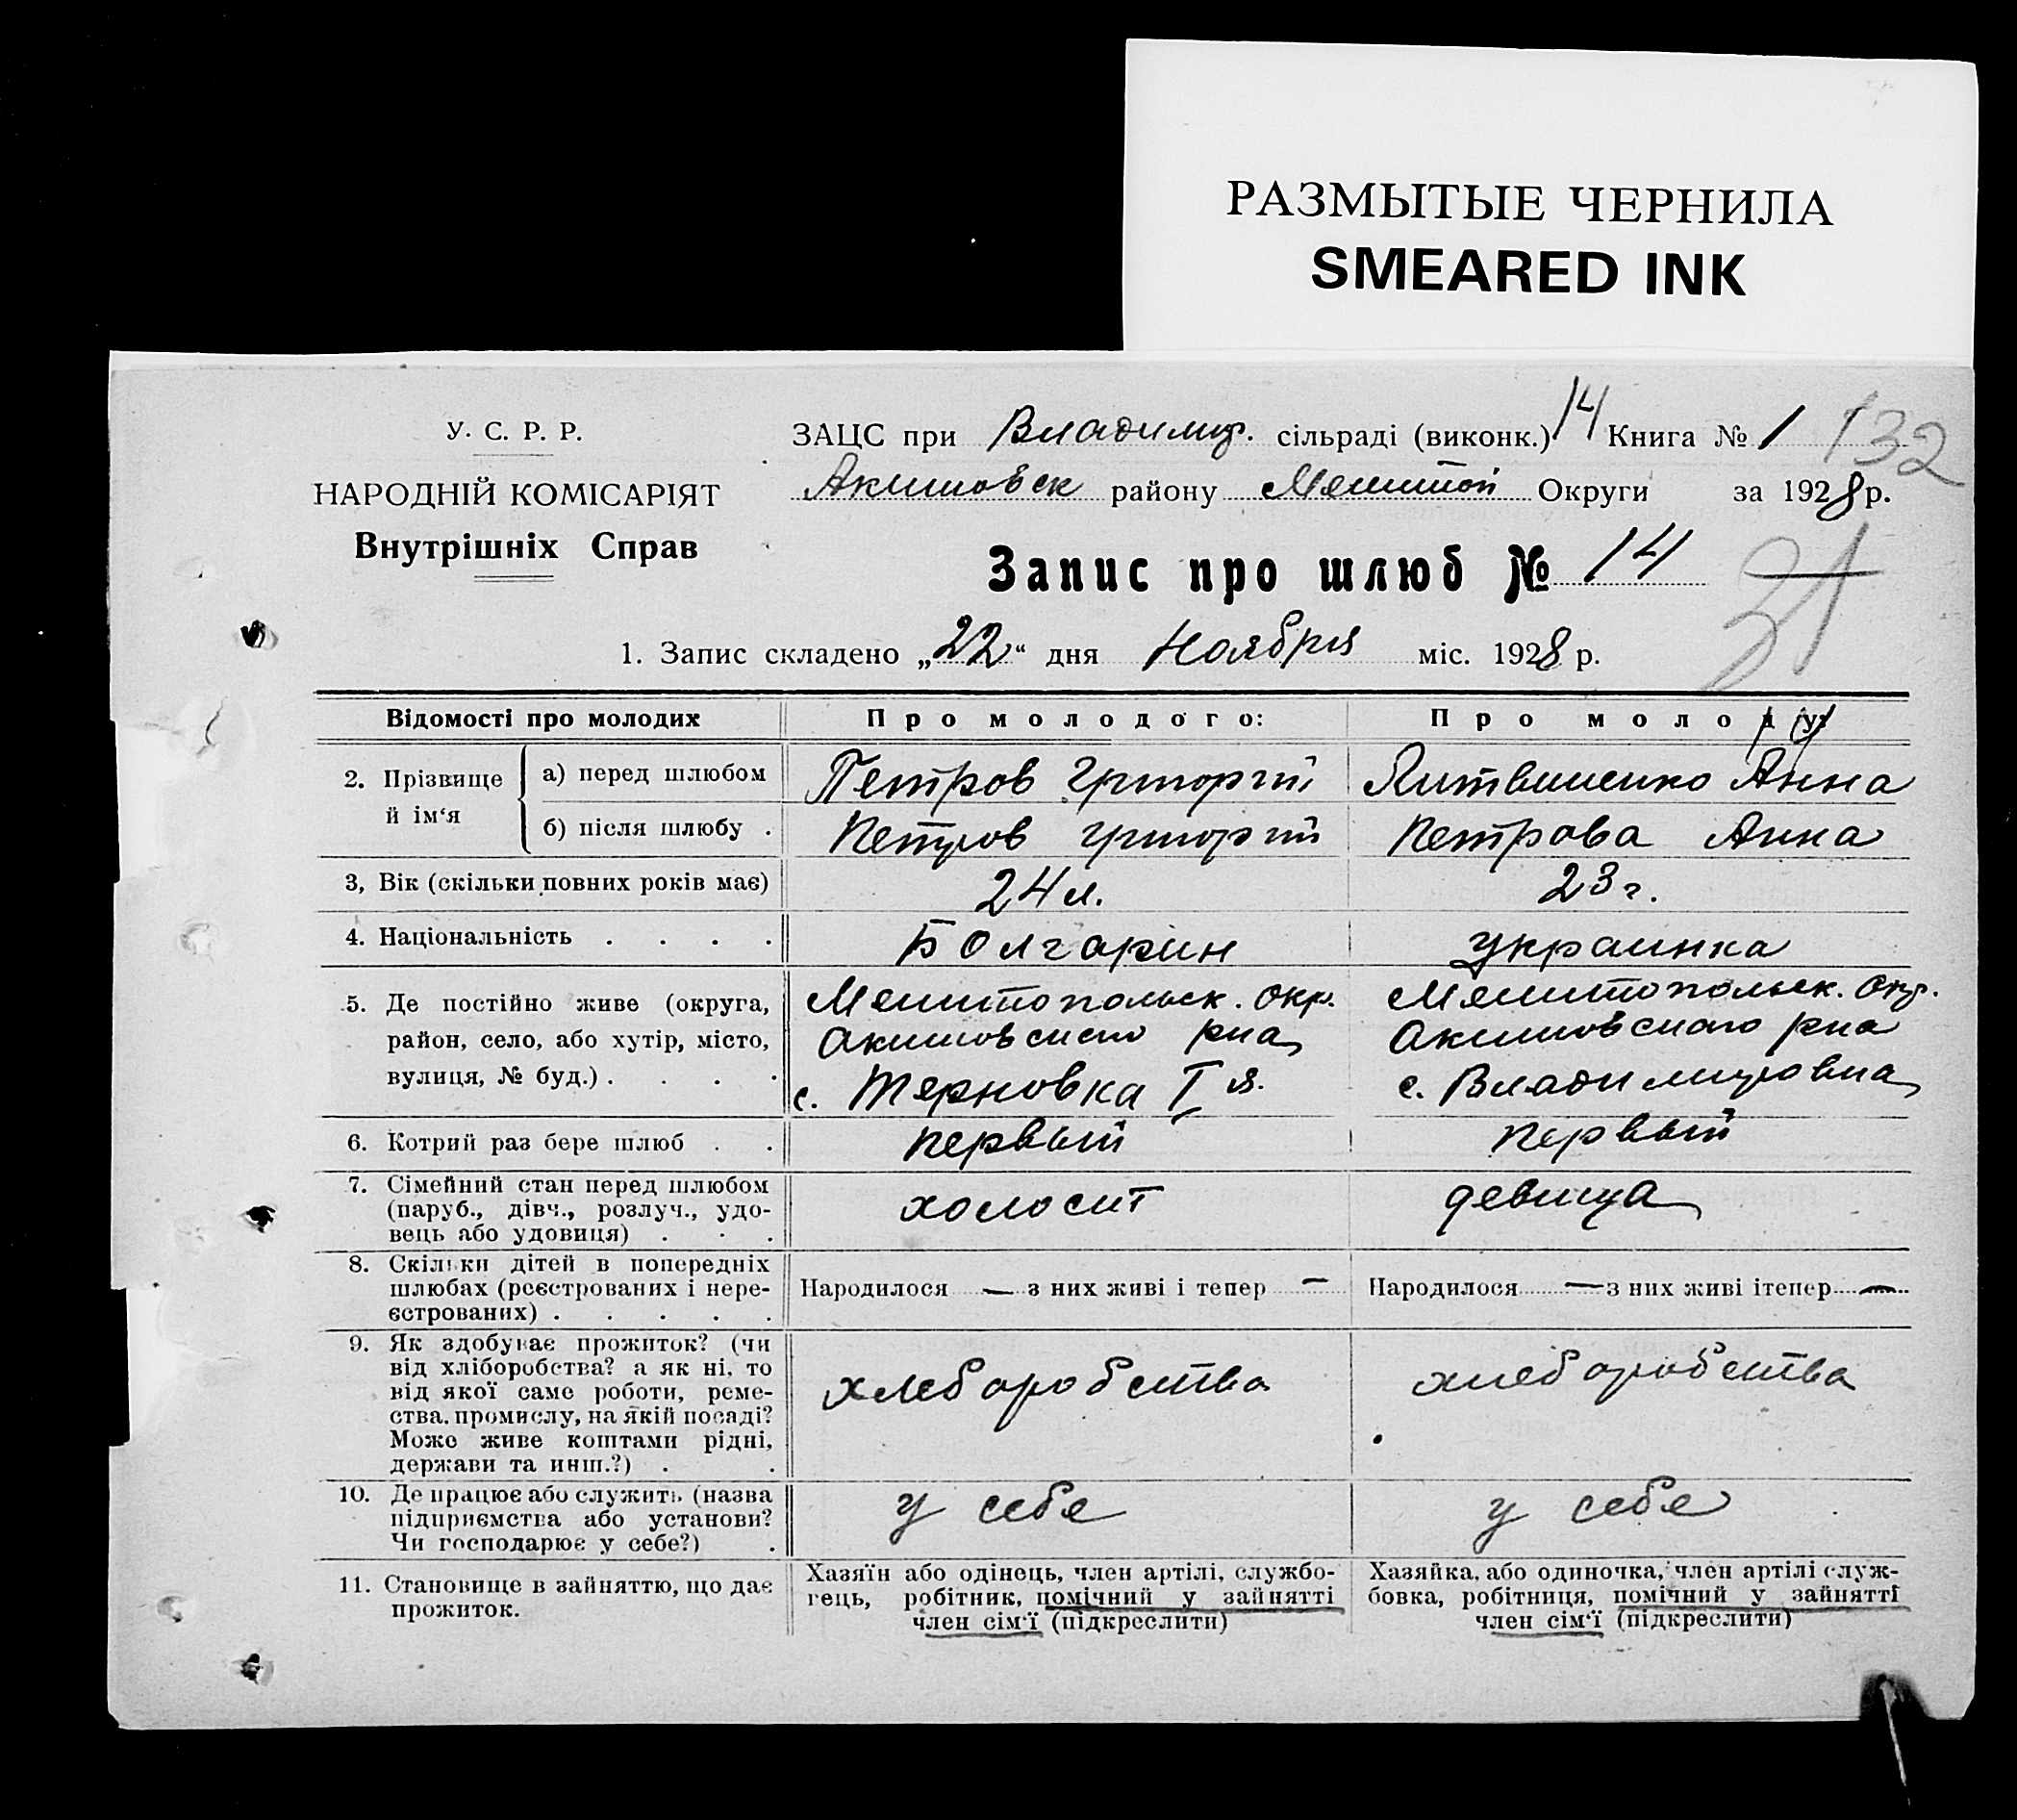 РАЗМЫТЫЕ ЧЕРНИЛА
SMEARED INK
У. С. Р. Р.
НАРОДНІЙ КОМІСАРІЯТ
Внутрішніх Справ
ЗАЦС при Владимир. сільраді (виконк.) 14 Книга № 1 132
Акимовск району Мелитоп Округи за 1928 р.
Запис про шлюб № 14
31
1. Запис складено „22“ дня Ноября міс. 1928 р.
Відомості про молодих
Про молодого:
Про молоду:
2. Прізвище й ім‘я
а) перед шлюбом
Петров Григорий
Литвиненко Анна
б) після шлюбу .
Петров Григорий
Петрова Анна
3, Вік (скільки повних років має)
24 л.
23 г.
4. Національність . . . .
Болгарин
украинка
5. Де постійно живе (округа,
район, село, або хутір, місто,
вулиця, № буд.) . . . .
Мелитопольск. окр.
Акимовского рна
с. Терновка I я.
Мелитопольск. Окр.
Акимовского рна
с. Владимировка
6. Котрий раз бере шлюб . .
первый
первый
7. Сімейний стан перед шлюбом
(паруб., дівч., розлуч., удо-
вець або удовиця) . . .
холост
девица
8. Скільки дітей в попередніх
шлюбах (реєстрованих і нере-
єстрованих) . . . . .
Народилося — з них живі і тепер —
Народилося — з них живі ітепер —
9. Як здобуває прожиток? (чи
від хліборобства? а як ні, то
від якої саме роботи, реме-
ства, промислу, на якій посаді?
Може живе коштами рідні,
держави та инш.?) . .
хлеборобства
хлеборобства
10. Де працює або служить (назва
підприємства або установи?
Чи господарює у себе?) .
у себе
у себе
11. Становище в зайняттю, що дає
прожиток.
Хазяїн або одінець, член артілі, службо-
гець, робітник, помічний у зайнятті
член сім‘ї (підкреслити)
Хазяйка, або одиночка, член артілі служ-
бовка, робітниця, помічний у зайнятті
член сім‘ї (підкреслити)